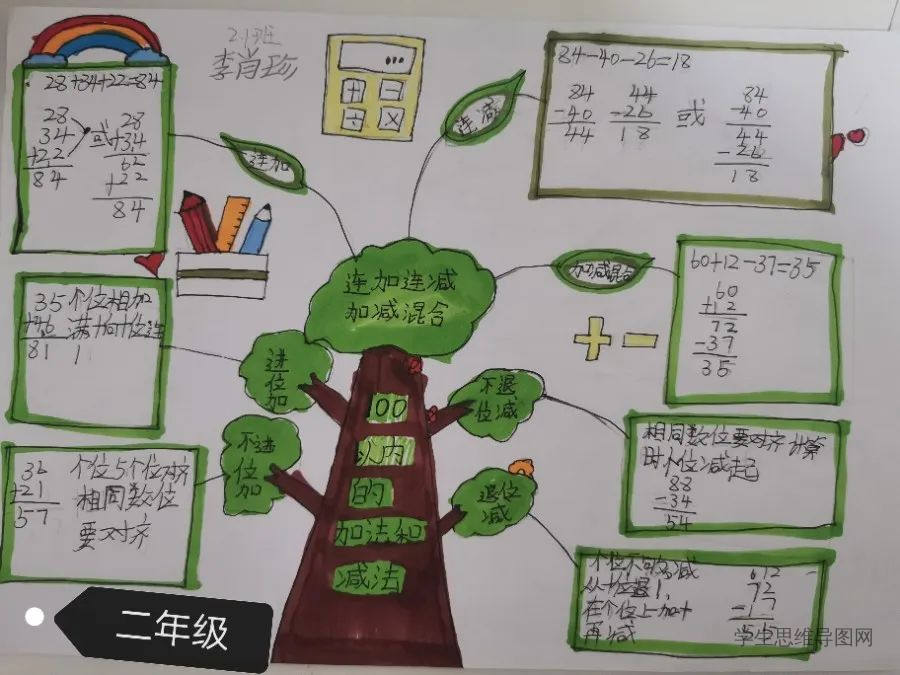 2.1班
李肖珍
28+34+22=84
28
34
+22
84
或
28
+34
62
+22
84
连加
连减
84-40-26=18
84
-40
44
44
-26
18
或
84
-40
44
-26
18
连加连减
加减混合
加减混合
60+12-37=35
60
+12
72
-37
35
35
+46
81
个位相加
满十向十位进
1
进位加
不进位加
32
+21
57
个位与个位对齐
相同数位
要对齐
100
以内
的
加法和
减法
不退位减
相同数位要对齐计算
时个位减起
88
-34
54
退位减
个位不够减
从十位退1,
在个位上加十
再减
612
72
-17
55
二年级
学生思维导图网